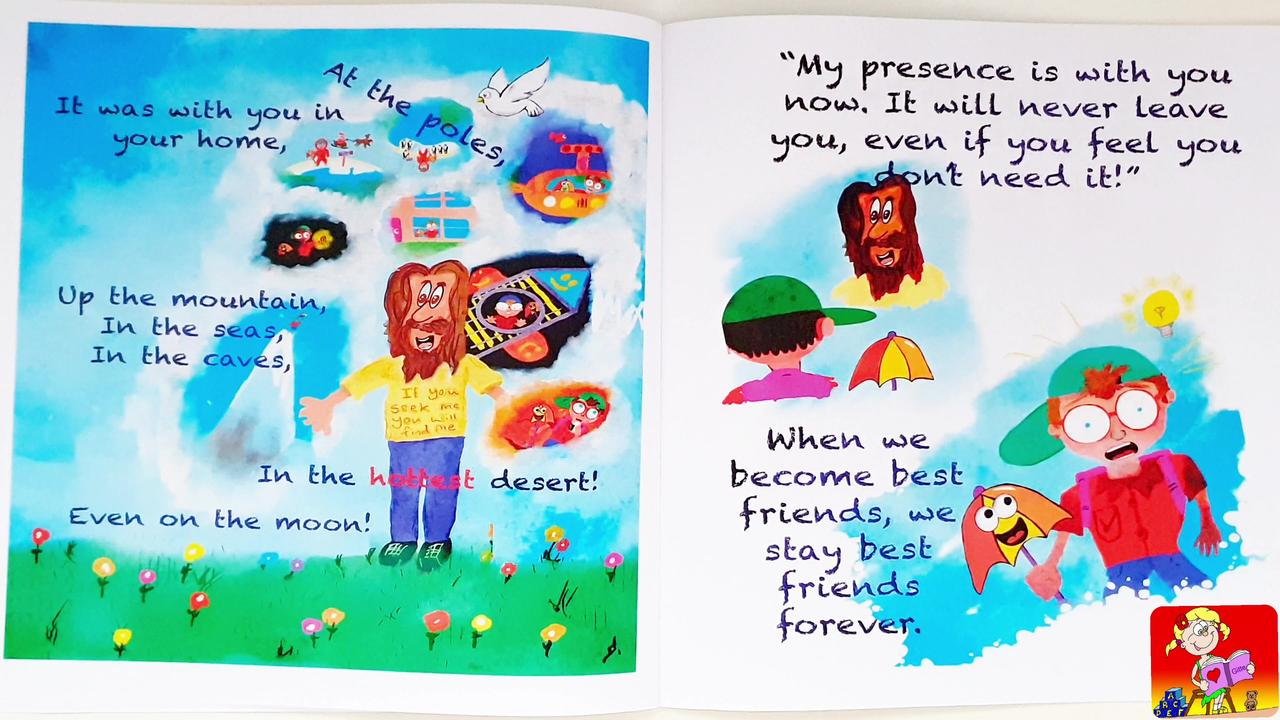 It was with you in
your home,
At the poles,
Up the mountain,
In the seas,
In the caves,
If you
seek me
you will
find me
In the hottest desert!
Even on the moon!
"My presence is with you
now. It will never leave
you, even if you feel you
don't need it!"
When we
become best
friends, we
stay best
friends
forever.
A
B C
D E F